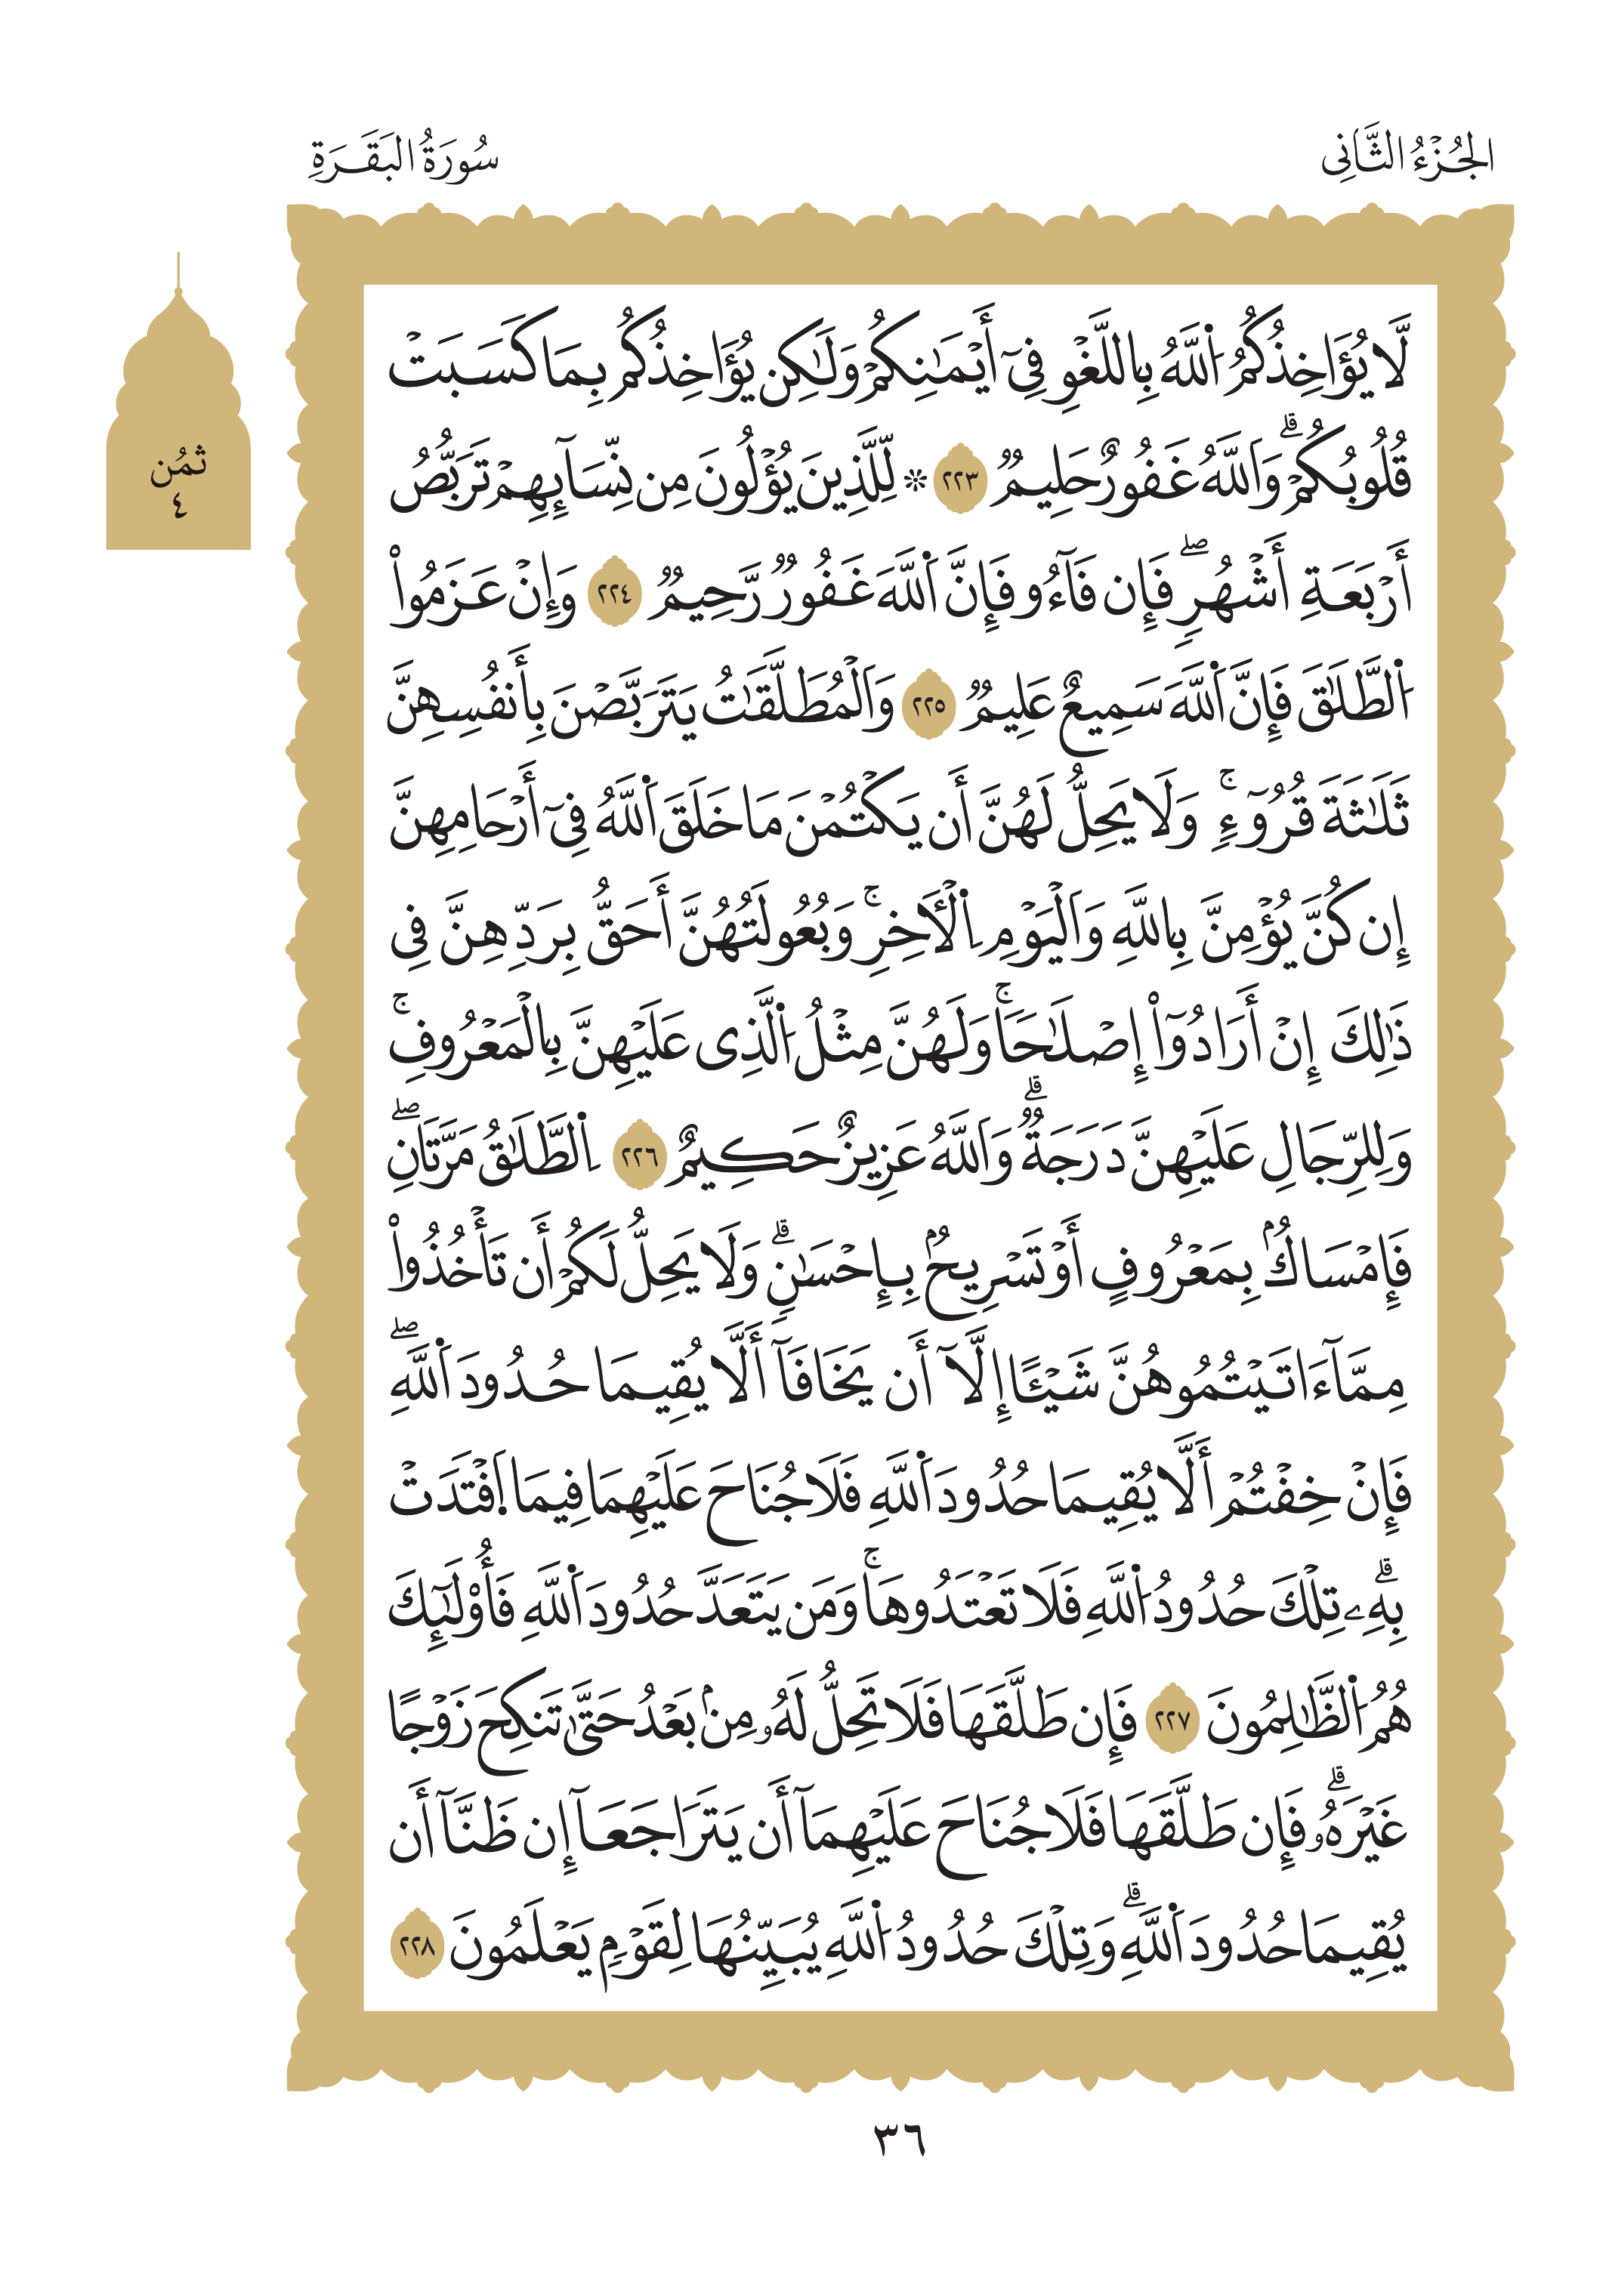 الجُزْءُ الثَّانِى
سُورَةُ البَقَرَةِ
ثُمُن
٤
لَّا يُؤَاخِذُكُمُ اُ۬للَّهُ بِاللَّغْوِ فِےٓ أَيْمَٰنِكُمْ وَلَٰكِن يُؤَاخِذُكُم بِمَا كَسَبَتْ
قُلُوبُكُمْۗ وَاَللَّهُ غَفُورٌ حَلِيمٞ ٢٢٣ ۞ لِّلَّذِينَ يُؤْلُونَ مِن نِّسَآئِهِمْ تَرَبُّصُ
أَرْبَعَةِ أَشْهُرٖۖ فَإِن فَآءُو فَإِنَّ اَ۬للَّهَ غَفُورٞ رَّحِيمٞ ٢٢٤ وَإِنْ عَزَمُواْ
اُ۬لطَّلَٰقَ فَإِنَّ اَ۬للَّهَ سَمِيعٌ عَلِيمٞ ٢٢٥ وَاَلْمُطَلَّقَٰتُ يَتَرَبَّصْنَ بِأَنفُسِهِنَّ
ثَلَٰثَةَ قُرُوٓءٖۚ وَلَا يَحِلُّ لَهُنَّ أَن يَكْتُمْنَ مَا خَلَقَ اَ۬للَّهُ فِےٓ أَرْحَامِهِنَّ
إِن كُنَّ يُؤْمِنَّ بِاللَّهِ وَاَلْيَوْمِ اِ۬لْأٓخِرِۚ وَبُعُولَتُهُنَّ أَحَقُّ بِرَدِّهِنَّ فِى
ذَٰلِكَ إِنْ أَرَادُوٓاْ إِصْلَٰحٗاۚ وَلَهُنَّ مِثْلُ اُ۬لَّذِى عَلَيْهِنَّ بِالْمَعْرُوفِۚ
وَلِلرِّجَالِ عَلَيْهِنَّ دَرَجَةٞۗ وَاَللَّهُ عَزِيزٌ حَكِيمٌ ٢٢٦ اِ۬لطَّلَٰقُ مَرَّتَانِۖ
فَإِمْسَاكُۢ بِمَعْرُوفٍ أَوْ تَسْرِيحُۢ بِإِحْسَٰنٖۗ وَلَا يَحِلُّ لَكُمْ أَن تَأْخُذُواْ
مِمَّآ ءَاتَيْتُمُوهُنَّ شَيْـًٔا إِلَّآ أَن يَخَافَآ أَلَّا يُقِيمَا حُدُودَ اَ۬للَّهِۖ
فَإِنْ خِفْتُمْ أَلَّا يُقِيمَا حُدُودَ اَ۬للَّهِ فَلَا جُنَاحَ عَلَيْهِمَا فِيمَا اَ۪فْتَدَتْ
بِهِۦۗ تِلْكَ حُدُودُ اُ۬للَّهِ فَلَا تَعْتَدُوهَاۚ وَمَن يَتَعَدَّ حُدُودَ اَ۬للَّهِ فَأُوْلَٰٓئِكَ
هُمُ اُ۬لظَّٰلِمُونَ ٢٢٧ فَإِن طَلَّقَهَا فَلَا تَحِلُّ لَهُۥ مِنۢ بَعْدُ حَتَّىٰ تَنكِحَ زَوْجًا
غَيْرَهُۥۗ فَإِن طَلَّقَهَا فَلَا جُنَاحَ عَلَيْهِمَآ أَن يَتَرَاجَعَآ إِن ظَنَّآ أَن
يُقِيمَا حُدُودَ اَ۬للَّهِۗ وَتِلْكَ حُدُودُ اُ۬للَّهِ يُبَيِّنُهَا لِقَوْمٖ يَعْلَمُونَ ٢٢٨
٣٦